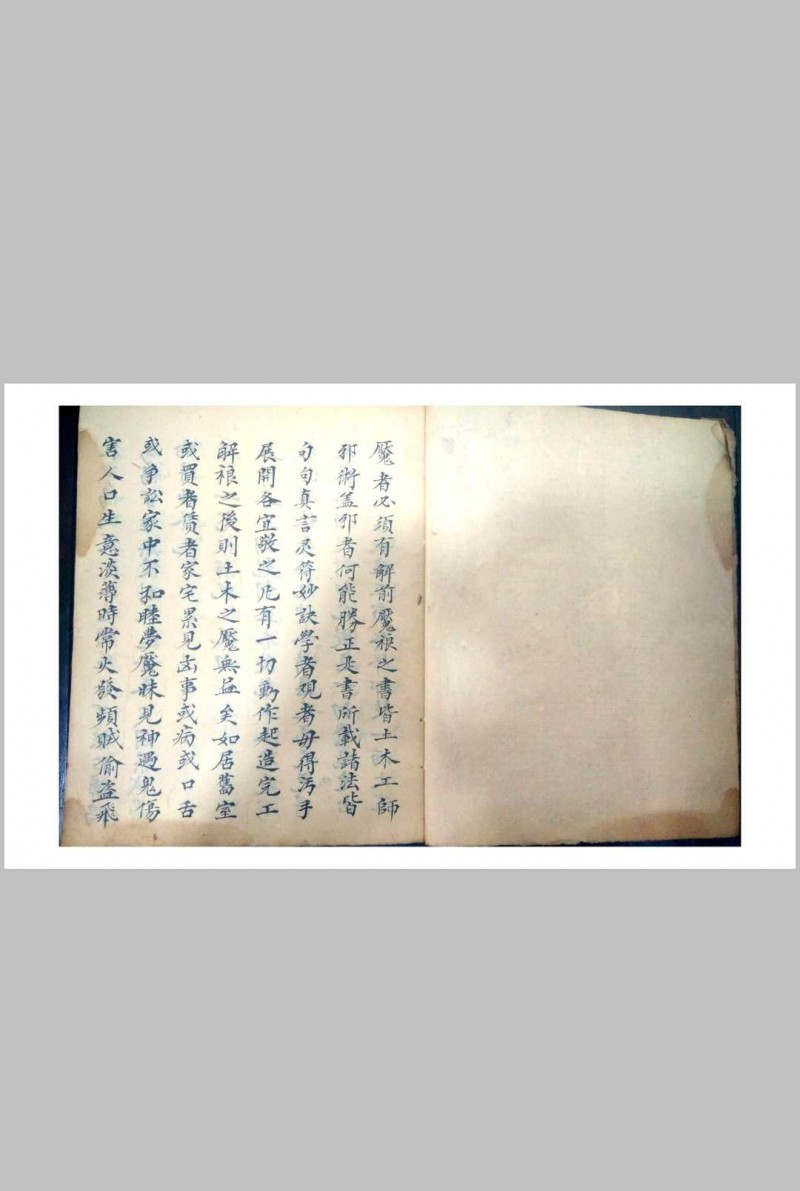 魘者必須有解前魘禳之書皆土木工師
邪術盖邪者何能勝正是書所載諸法皆
句句真言灵符妙訣學者观者毋得汚手
展開各宜敬之凡有一切動作起造完工
解禳之後則土木之魘無益矣如居舊室
或買者賃者家宅累見凶事或病或口舌
或爭訟家中不和睦夢魘昧見神遇鬼傷
害人口生意淡薄時常火發頻賊偷盜飛